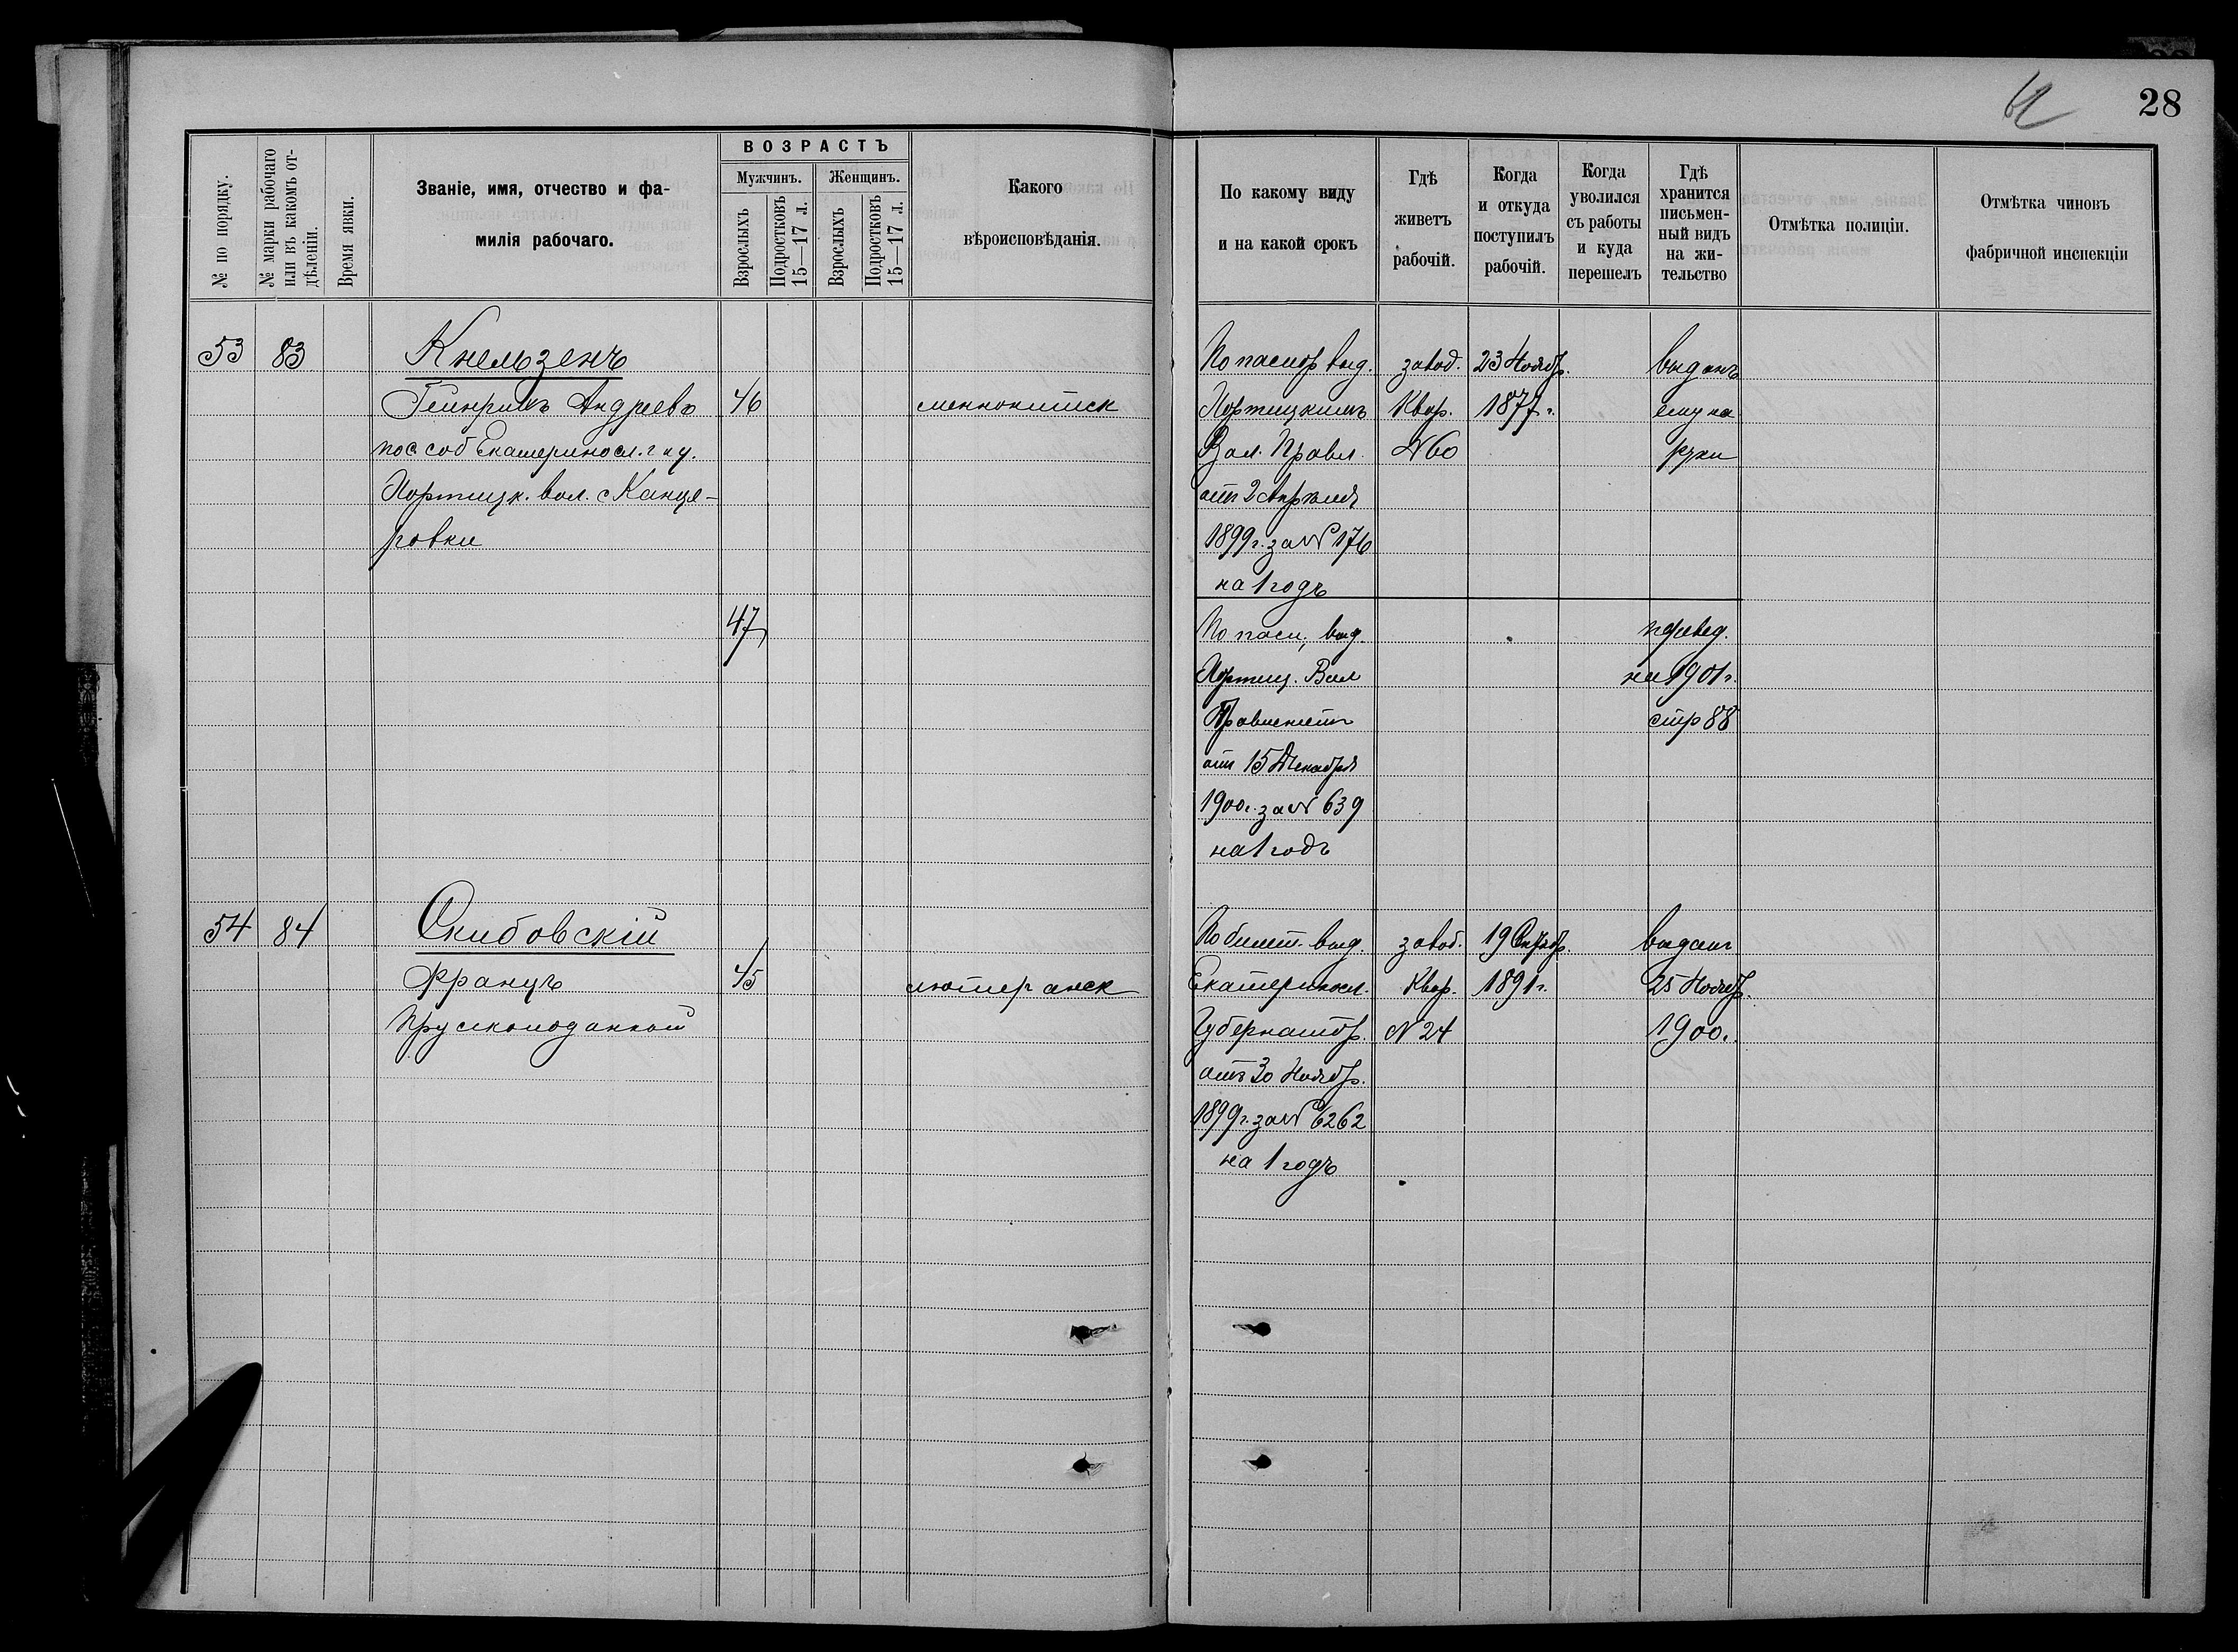 28
№ по порядку.
№ марки рабочаго
или въ какомъ от-
дѣленіи.
Время явки.
Званіе, имя, отчество и фа-
милія рабочаго.
ВОЗРАСТЪ
Мужчинъ.
Женщинъ.
Взрослыхъ
Подростковъ
15—17 л.
Взрослыхъ
Подростковъ
15—17 л.
Какого
вѣроисповѣданія.
По какому виду
и на какой срокъ
Гдѣ
живетъ
рабочій.
Когда
и откуда
поступилъ
рабочій.
Когда
уволился
съ работы
и куда
перешелъ
Гдѣ
хранится
письмен-
ный видъ
на жи-
тельство
Отмѣтка полиціи.
Отмѣтка чиновъ
фабричной инспекціи
53
83
Кнельзенъ
Генрихъ Андреевъ
пос соб Екатериносл. г ну.
Хортицк. вол. с Канце-
ровки
46
47
меннонитск
По паспор выд.
Хортицкимъ
Вол. Правл.
отъ 2 Апрѣля
1899 г. за № 176
на 1 годъ
завод.
Квар.
№ 60
23 Ноябр.
1877 г.
выданъ
ему на
руки
По пасп, выд.
Хортиц. Вол
Правленіемъ
отъ 15 Декабря
1900 г. за № 639
на 1 годъ
перевед.
на 1901 г.
стр 88
54
84
Скибовскій
Францъ
Прусскоподанной
45
лютеранск
По билет. выд.
Екатеринос.
Губернатор.
отъ 30 Ноябр.
1899 г. за № 6262
на 1 годъ
завод.
Квар.
№ 24
19 Октяб.
1891 г.
выданъ
25 Ноябр.
1900 г.